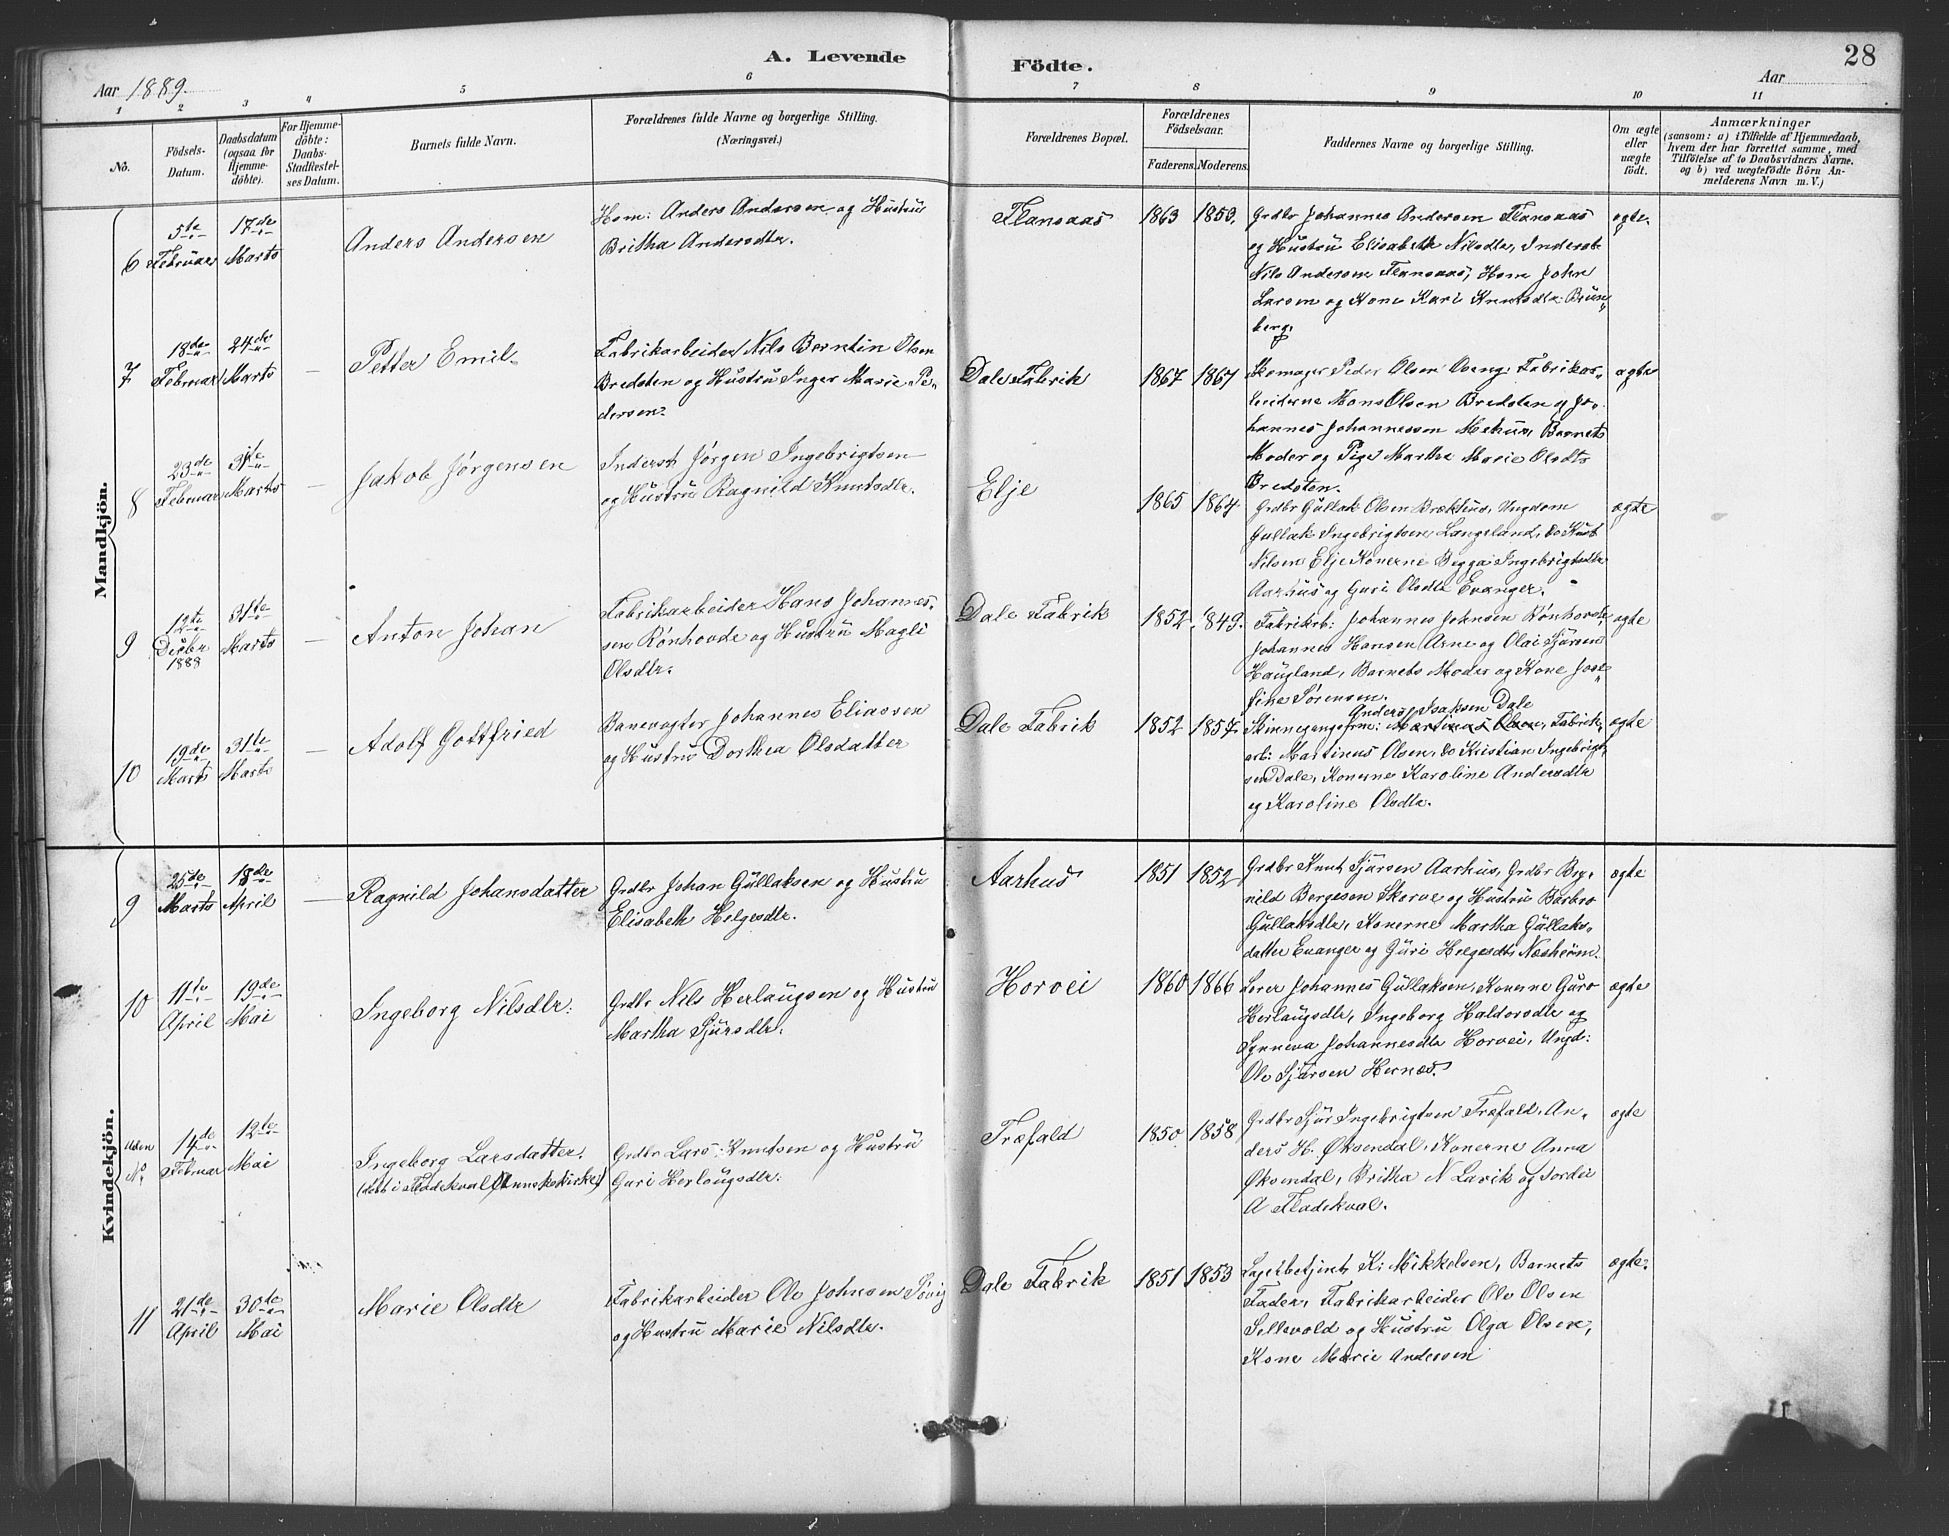 A. Levende
Födte.
28
Aar 1889.
Aar
1 2 3 4 5 6 7 8 9 10 11
No.
Födsels-
Datum.
Daabsdatum
(ogsaa for
Hjemme-
döbte).
For Hjemme-
döbte:
Daabs-
Stadfæstel-
ses Datum.
Barnets fulde Navn.
Forældrenes fulde Navne og borgerlige Stilling.
(Næringsvei.)
Forældrenes Bopæl.
Forældrenes
Födselsaar.
Faderens. Moderens.
Faddernes Navne og borgerlige Stilling.
Om ægte
eller
uægte
födt.
Anmærkninger
(saasom: a) i Tilfælde af Hjemmedaab,
hvem der har forrettet samme, med
Tilföielse af to Daabsvidners Navne.
og b) ved uægtefödte Börn An-
melderens Navn m. V.)
Mandkjön.
6
5te
Februar
17de
Marts
Anders Andersen
Hsm: Anders Andersen og Hustru
Britha Andersdtr.
Flansaas
1863
1859.
Grdbr Johannes Andersen Flansaas
og Hustru Elisabeth Nilsdtr, Inderst
Nils Andersen Flansaas, Hsm John
Larsen og Kone Kari Knutsdtr Brün„
berg.
ægte.
7
18de
Februar
24de
Marts
—
Petter Emil
Fabrikarbeider Nils Berntin Olsen
Bredsten og Hustru Inger Marie Pe-
dersen.
Dale Fabrik
1867
1867
Skomager Peder Olsen Øeng, Fabrikar„
beiderne Hans Olsen Bredsten og Jo„
hannes Johannessen Mehus, Barnets
Moder og Pige Martha Marie Olsdts
Bredsten.
ægte
8
23de
Februar
31te
Marts
—
Jakob Jørgensen
Inderst Jørgen Ingebrigtsen
og Hustru Ragnild Knutsdtr.
Elje
1865
1864
Grdbr Gullak Olsen Brækhus, Ungdom
Gullak Ingebrigtsen Langeland, do Knut
Nilsen Elje Konerne Begga Ingebrigtsdtr
Aarhus og Guri Olsdtr Evanger.
ægte
9
12te
Decbr
1888
31te
Marts
—
Anton Johan
Fabrikarbeider Hans Johannes„
sen Rønhovde og Hustru Magli
Olsdtr.
Dale Fabrik
1852
1849.
Fabrikrb: Johannes Johnsen Rønhovde,
Johannes Hansen Arne og Olai Sjursen
Haugland, Barnets Moder og Kone Jose„
fine Sørensen.
ægte
10
19de
Marts
31te
Marts
—
Adolf Gottfried
Banevogter Johannes Eliassen
og Hustru Dorthea Olsdatter
Dale Fabrik
1852
1857.
Anders Isaksen Dale
Skinnegangsfrm: Martinus Olsen, Fabrik„
arb: Martinus Olsen, do Kristian Ingebrigt„
sen Dale, Konerne Karoline Andersdtr
og Karoline Olsdtr.
ægte
Kvindekjön.
9
25de
Marts
18de
April
—
Ragnild Johansdatter
Grdbr Johan Gullaksen og Hustru
Elisabeth Helgesdtr.
Aarhus
1851
1852
Grdbr Knut Sjursen Aarhus, Grdbr Bry„
nild Bergesen Skorve og Hustru Barbro
Gullaksdtr, Konerne Martha Gullaks„
datter Evanger og Guri Helgesdtr Næsheim.
ægte
10
11te
April
19de
Mai
Ingeborg Nilsdtr.
Grdbr Nils Herlaugsen og Hustru
Martha Sjursdtr.
Horvei
1860
1866
Lærer Johannes Gullaksen, Konerne Guro
Herlaugsdtr, Ingeborg Haldorsdtr og
Synneva Johannesdtr Horvei, Ungd:
Ole Sjursen Hernæs.
ægte
Uden
No.
14de
Februar
12te
Mai
Ingeborg Larsdatter.
(døbt i Fladekval Annskirke)
Grdbr Lars Knutsen og Hustru
Guri Herlaugsdtr.
Træfald
1850
1858
Grdbr Sjur Ingebrigtsen Træfald, An„
ders H. Øksendal, Konerne Anna
Øksendal, Britha N Larik og Jordei
A Fladekval.
ægte
11
21de
April
30de
Mai
Marie Olsdtr
Fabrikarbeider Ole Johnsen Søvig
og Hustru Marie Nilsdtr.
Dale Fabrik
1851
1853
Lagerbetjent K. Mikkelsen, Barnets
Fader, Fabrikarbeider Ole Olsen
Sellevold og Hustru Olga Olsen,
Kone Marie Andersen
ægte.